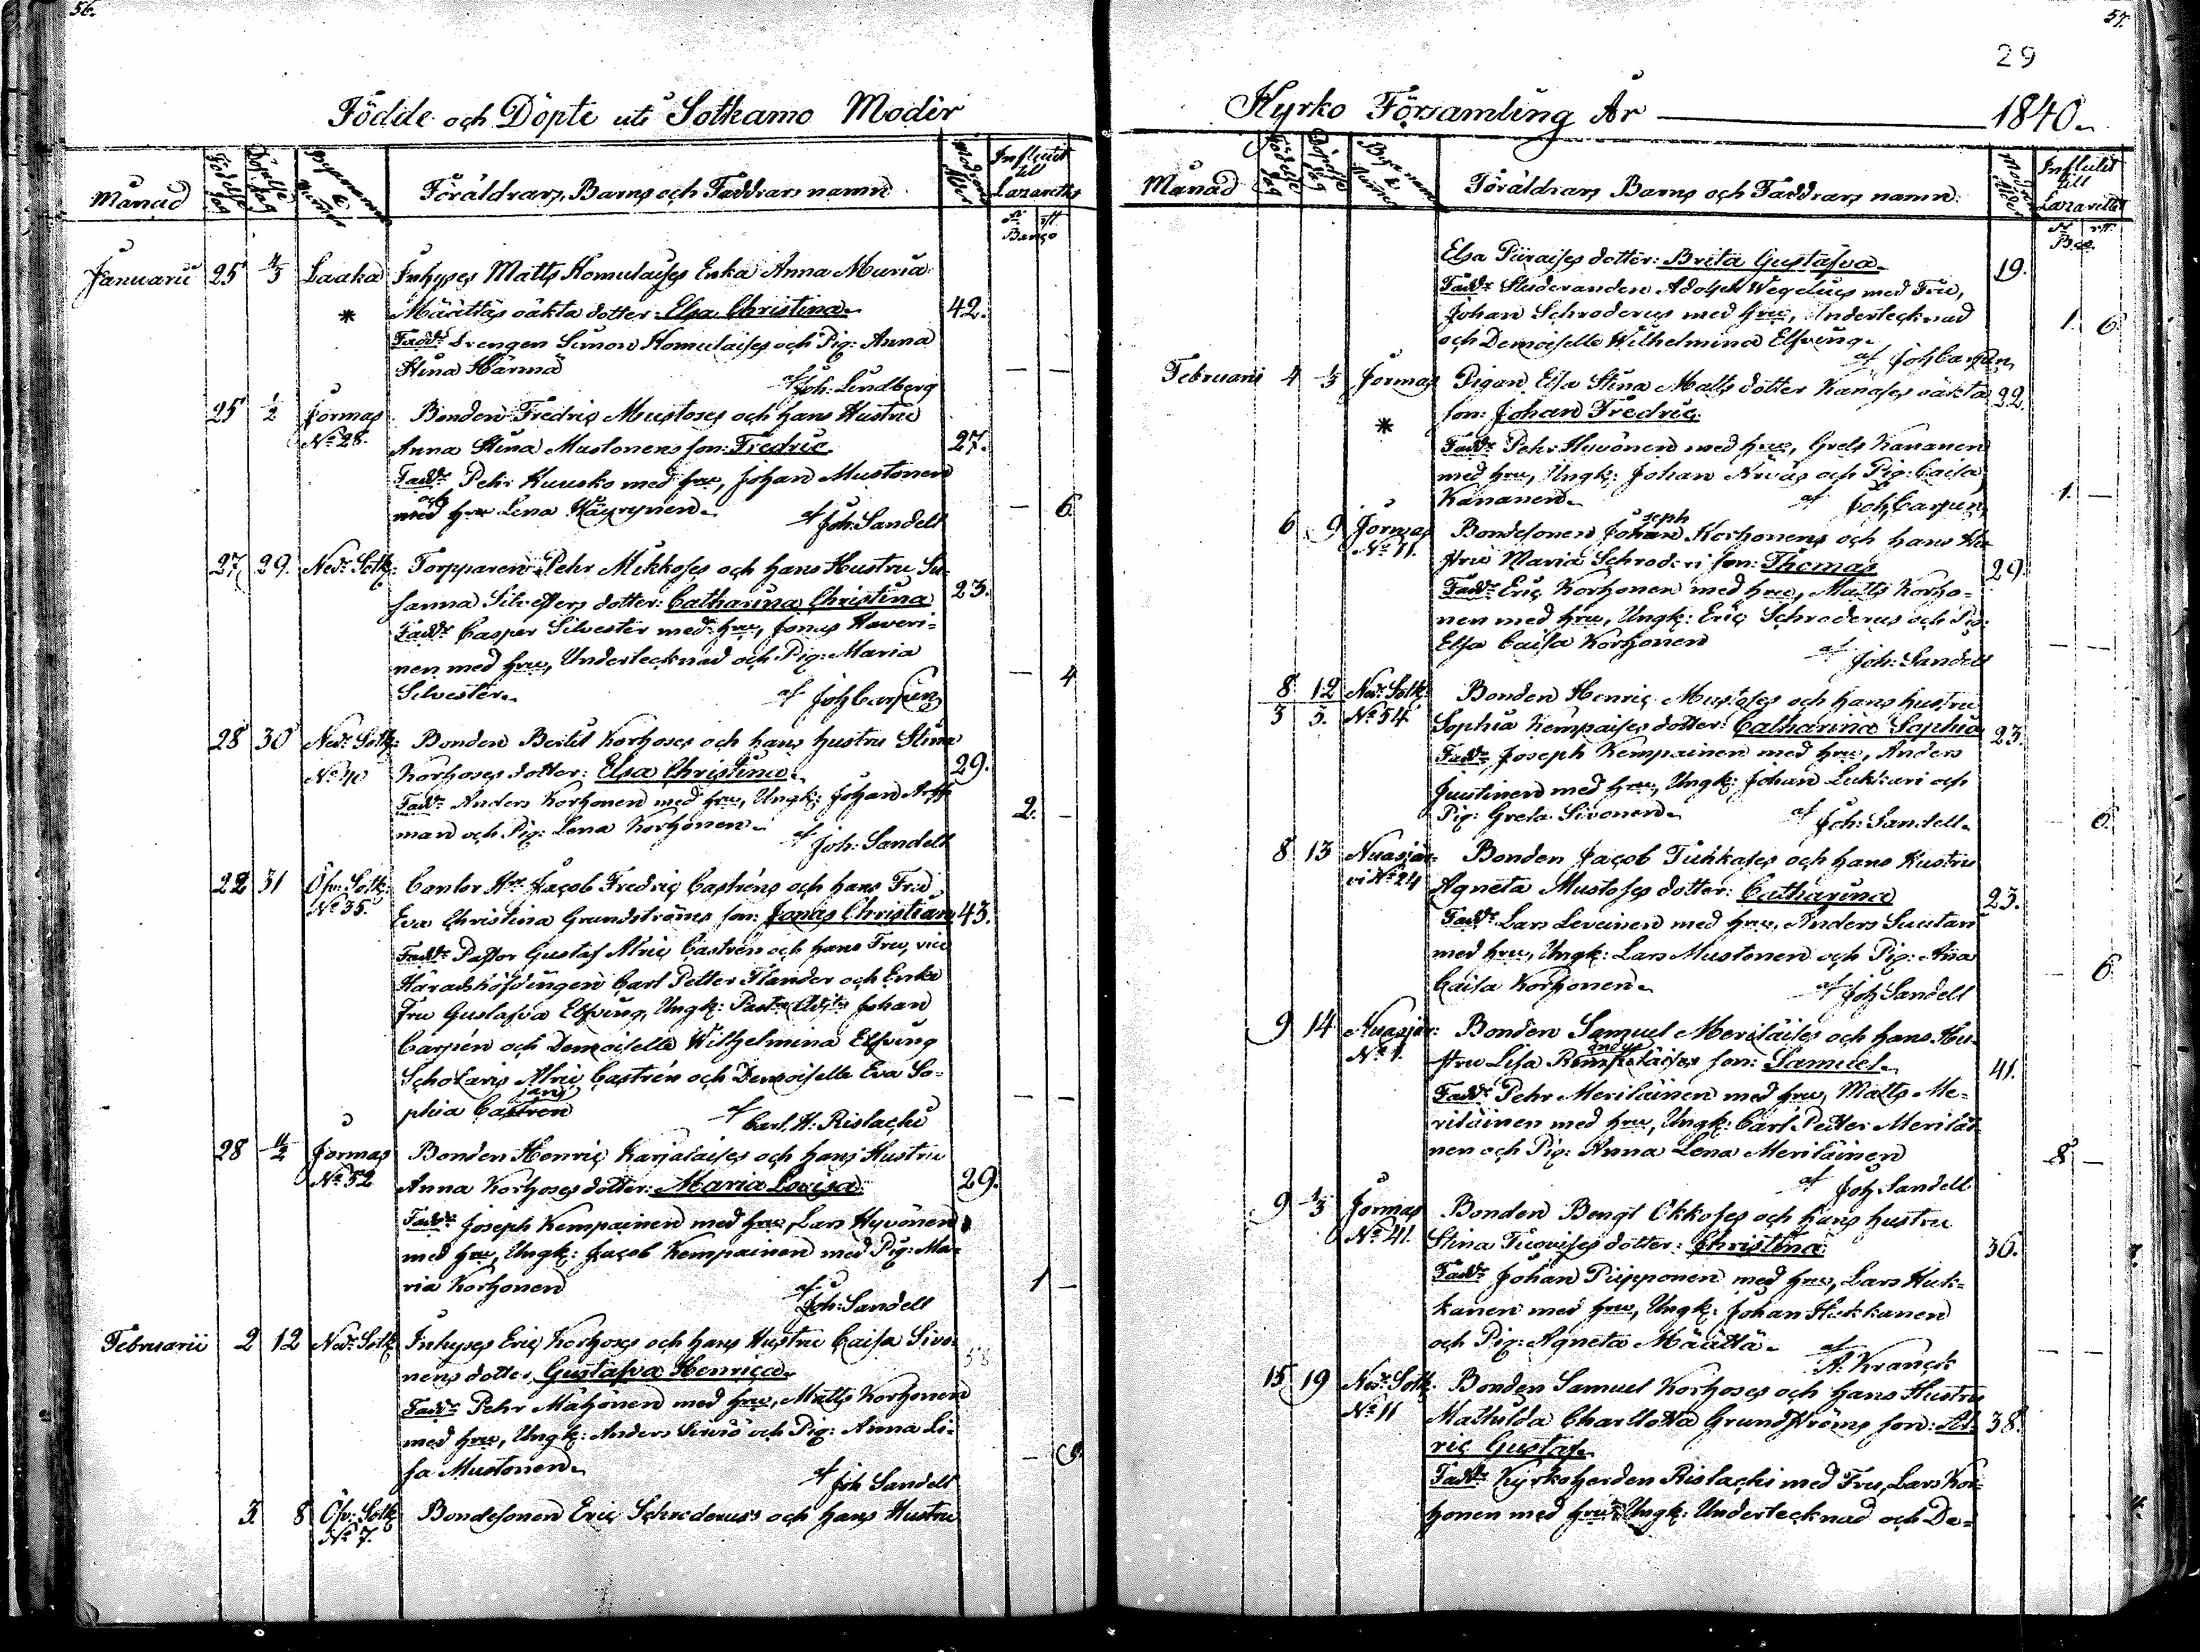 56.
Födde och Döpte uti Sotkamo Moder
Månad
Födelse dag
Döpelse dag
Bynamn & Numer
Föräldrars, Barns och Faddrars namn
Modrens Ålder
Influtit till Lazarettet
Banco
Januarii 25 1/3 Laaka Inhyses Matts Homulaises Enka Anna Maria
* Määttäs oäkta dotter: Elsa Christina 42.
Faddr Drengen Simon Homulaises och Pig: Anna
Stina Härmä af Joh: Lindberg — —
25 1/2 Jormas Bonden Fredric Mustoses och hans Hustru
No 28. Anna Stina Mustonens son: Fredric 27.
Faddr Pehr Kuusko med hru, Johan Mustonen
med hru och Lena Käyrynen. af Joh: Sandell — 6
27 29. Ned: Sotk: Torpparen Pehr Mikkoses och hans Hustru Su-
sanna Silvesters dotter: Catharina Christina 23.
Faddr Casper Silvester med hru, Jonas Haveri-
nen med hru, Undertecknad och Pig: Maria
Silvester. af Joh Carpén — 4
28 30 Ned: Sotk: Bonden Bertil Korhoses och hans hustru Stina
No 40 Korhoses dotter: Elsa Christina 29.
Faddr Anders Korhonen med hru, Ungk: Johan Arff-
man och Pig: Lena Korhonen. af Joh: Sandell 2. —
22 31 Öfv: Sotk: Cantor Hr Jacob Fredric Castréns och hans Fru
No 35. Eva Christina Grundströms son: Jonas Christian 43.
Faddr Pastor Gustaf Alric Castrén och hans Fru, vice
Häradshöfdingen Carl Petter Flander och Enke
Fru Gustafva Elfving, Ungk: Past: Adj: Johan
Carpén och Demoiselle Wilhelmina Elfving
Scholaris Alric Castrén och Demoiselle Eva So-
phia Castrén af Carl. H: Rislachi — —
28 11/2 Jormas Bonden Henric Karjalaises och hans Hustru
No 52 Anna Korhoses dotter: Maria Lovisa 29.
Faddr Joseph Kempainen med hru, Lars Hyvönen
med hru, Ungk: Jacob Kempainen med Pig: Ma-
ria Korhonen af Joh: Sandell 1 —
Februarii 2 12 Ned: Sotk: Inhyses Eric Korhoses och hans Hustru Caisa Sivo-
nens dotter Gustafva Henrica 38
Faddr Pehr Mähönen med hru, Matts Korhonen
med hru, Ungk: Anders Sirviö och Pig: Anna Li-
sa Mustonen. af Joh Sandell — 9.
3. 8 Öfv: Sotk: Bondesonen Eric Schroderus's och hans Hustru
No 7.
57.
29
Kyrko Församling År 1840.
Månad
Födelse dag
Döpelse dag
Bynamn & Numer
Föräldrars Barns och Faddrars namn
Modrens Ålder
Influtit till Lazarettet
Bco.
Elsa Piiraises dotter: Brita Gustafva 19.
Faddr Studeranden Adolph Wegelius med Fru,
Johan Schroderus med hru, Undertecknad 1. 6
och Demoiselle Wilhelmina Elfving.
af Joh Carpén
Februarii 4 1/3 Jormas Pigan Lisa Stina Matts dotter Kanases oäkta 22.
* son: Johan Fredric
Faddr Pehr Hyvönen med hru, Grels Kananen
med hru, Ungk: Johan Nivas och Pig: Caisa
Kananen. af Joh, Carpén 1. —
6 9 Jormas Bondesonen Joseph Korhonens och hans Hu-
No 11. stru Maria Schroderi son: Thomas 29
Faddr Eric Korhonen med hru, Matts Korho-
nen med hru, Ungk: Eric Schroderus och Pig:
Elsa Caisa Korhonen af Joh: Sandell — —
8 12 Ned: Sotk: Bonden Henric Mustoses och hans hustru
3 5. No 54 Sophia Kempaises dotter: Catharina Sophia 23.
Faddr Joseph Kempainen med hru, Anders
Juustinen med hru, Ungk: Johan Lukkari och
Pig: Greta Sivonen. af Joh: Sandell. — 6.
8 13 Nuasjär- Bonden Jacob Tuhkases och hans Hustru
vi No 24 Agneta Mustoses dotter: Catharina 23.
Faddr Lars Leveinen med hru, Anders Suutari
med hru, Ungk: Lars Mustonen och Pig: Ana
Caisa Korhonen. af Joh Sandell — 6
9 14 Nuasjär: Bonden Samuel Meriläises och hans Hu-
No 1. stru Lisa son: Samuel. 41.
Faddr Pehr Meriläinen med hru, Matts Me-
riläinen med hru, Ungk: Carl Petter Meriläi-
nen och Pig: Anna Lena Meriläinen
af Joh Sandell 8 —
9 1/3 Jormas Bonden Bengt Okkoses och hans hustru
No 41. Stina Tuovises dotter: Christina 36.
Faddr Johan Piipponen med hru, Lars Huk-
kanen med hru, Ungk: Johan Hukkanen
och Pig: Agneta Määttä. af A: Kranck — —
15 19 Ned: Sotk: Bonden Samuel Korhoses och hans Hustru
No 11 Mathilda Charlotta Grundströms son: Al- 38.
ric Gustaf.
Faddr Kyrkoherden Rislachi med Fru, Lars Kor-
honen med hru, Ungk: Undertecknad och De-